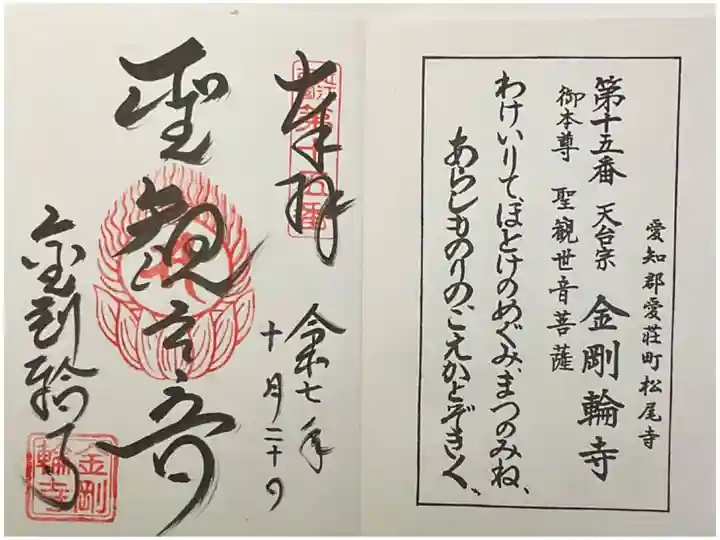 愛知郡愛荘町松尾寺
第十五番 天台宗 金剛輪寺
御本尊 聖観世音菩薩
わけいりてほとけのめぐみ、まつのみね、
あらしものりのこえかとぞきく、
奉拝
第十五番
令和七年
十月二十日
聖観世音
金剛輪寺
金剛
輪寺